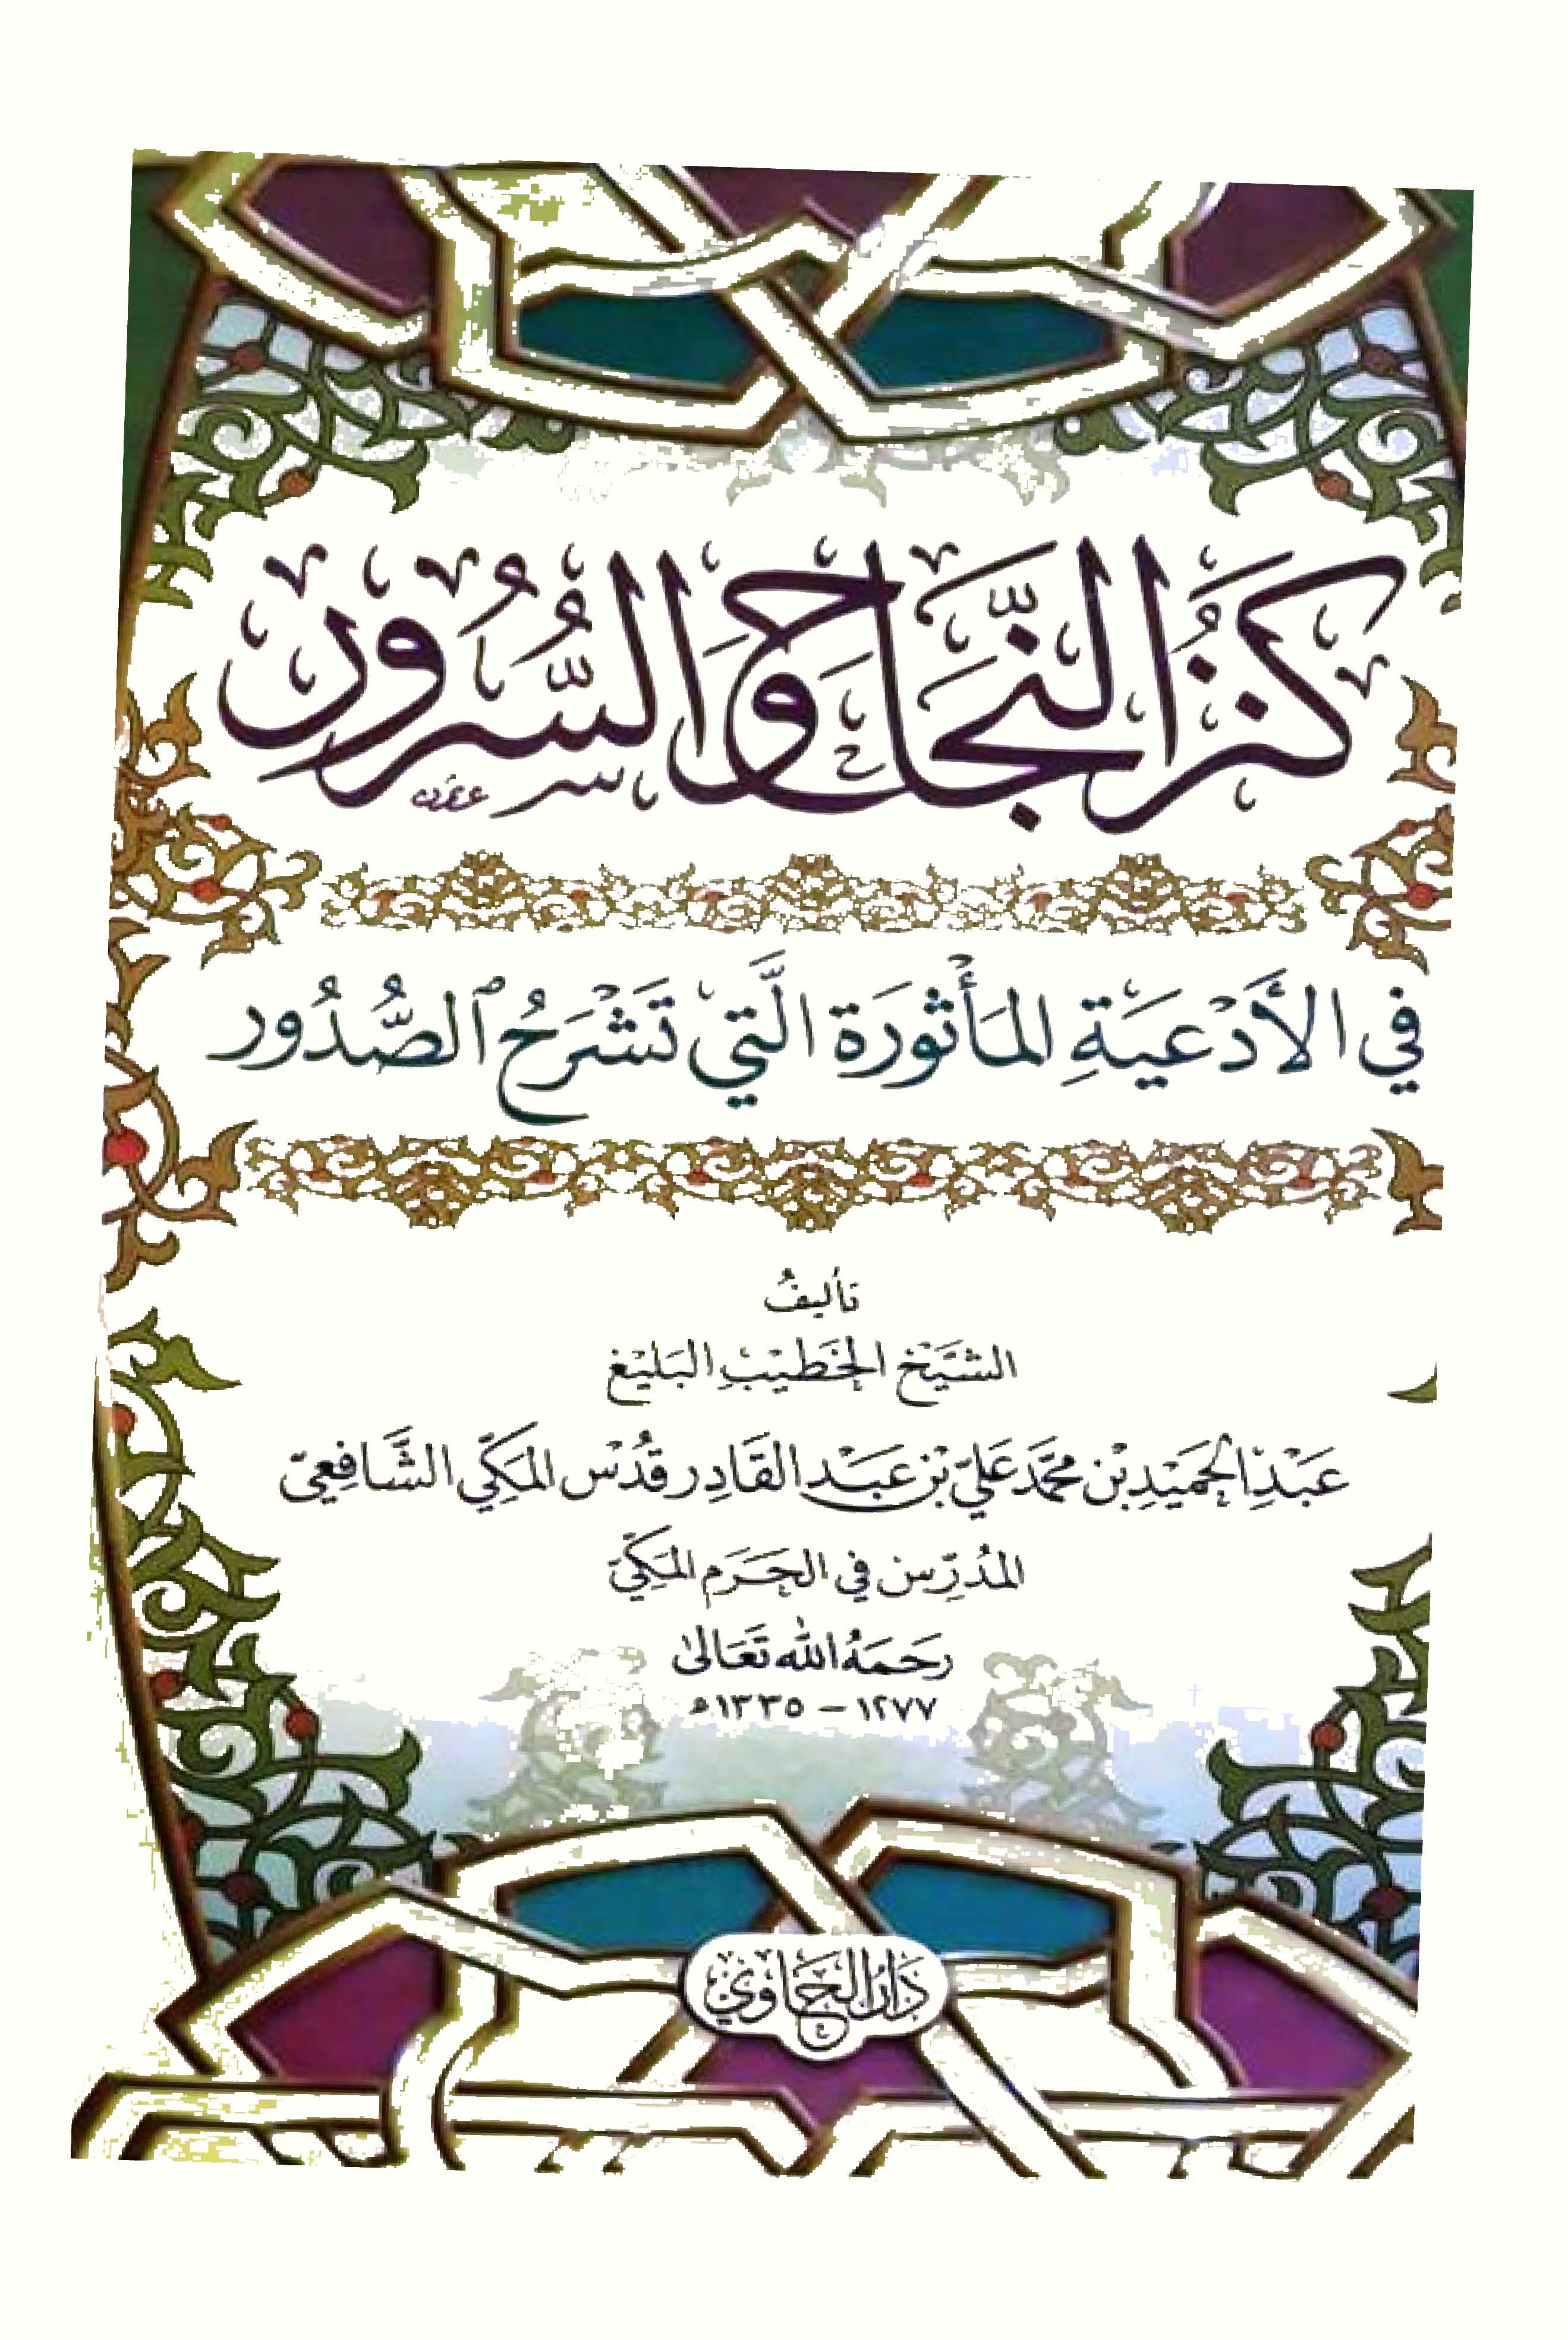 كَنْزُ النَّجَاحِ وَالسُّرُورِ
فِي الأَدْعِيَةِ المَأْثُورَةِ الَّتِي تَشْرَحُ ٱلصُّدُور
تأليفُ
الشَّيْخ الخَطِيْب البَلِيْغ
عَبْدِ الحَمِيْدِ بْن مُحَمَّد عَلِيّ بْن عَبْد القَادِر قُدْس المَكِّي الشَّافِعِيّ
المُدَرِّس في الحَرَم المَكِّيّ
رَحِمَهُ الله تَعَالىٰ
١٢٧٧ – ١٣٣٥هـ
دَارُ الحَاوِي